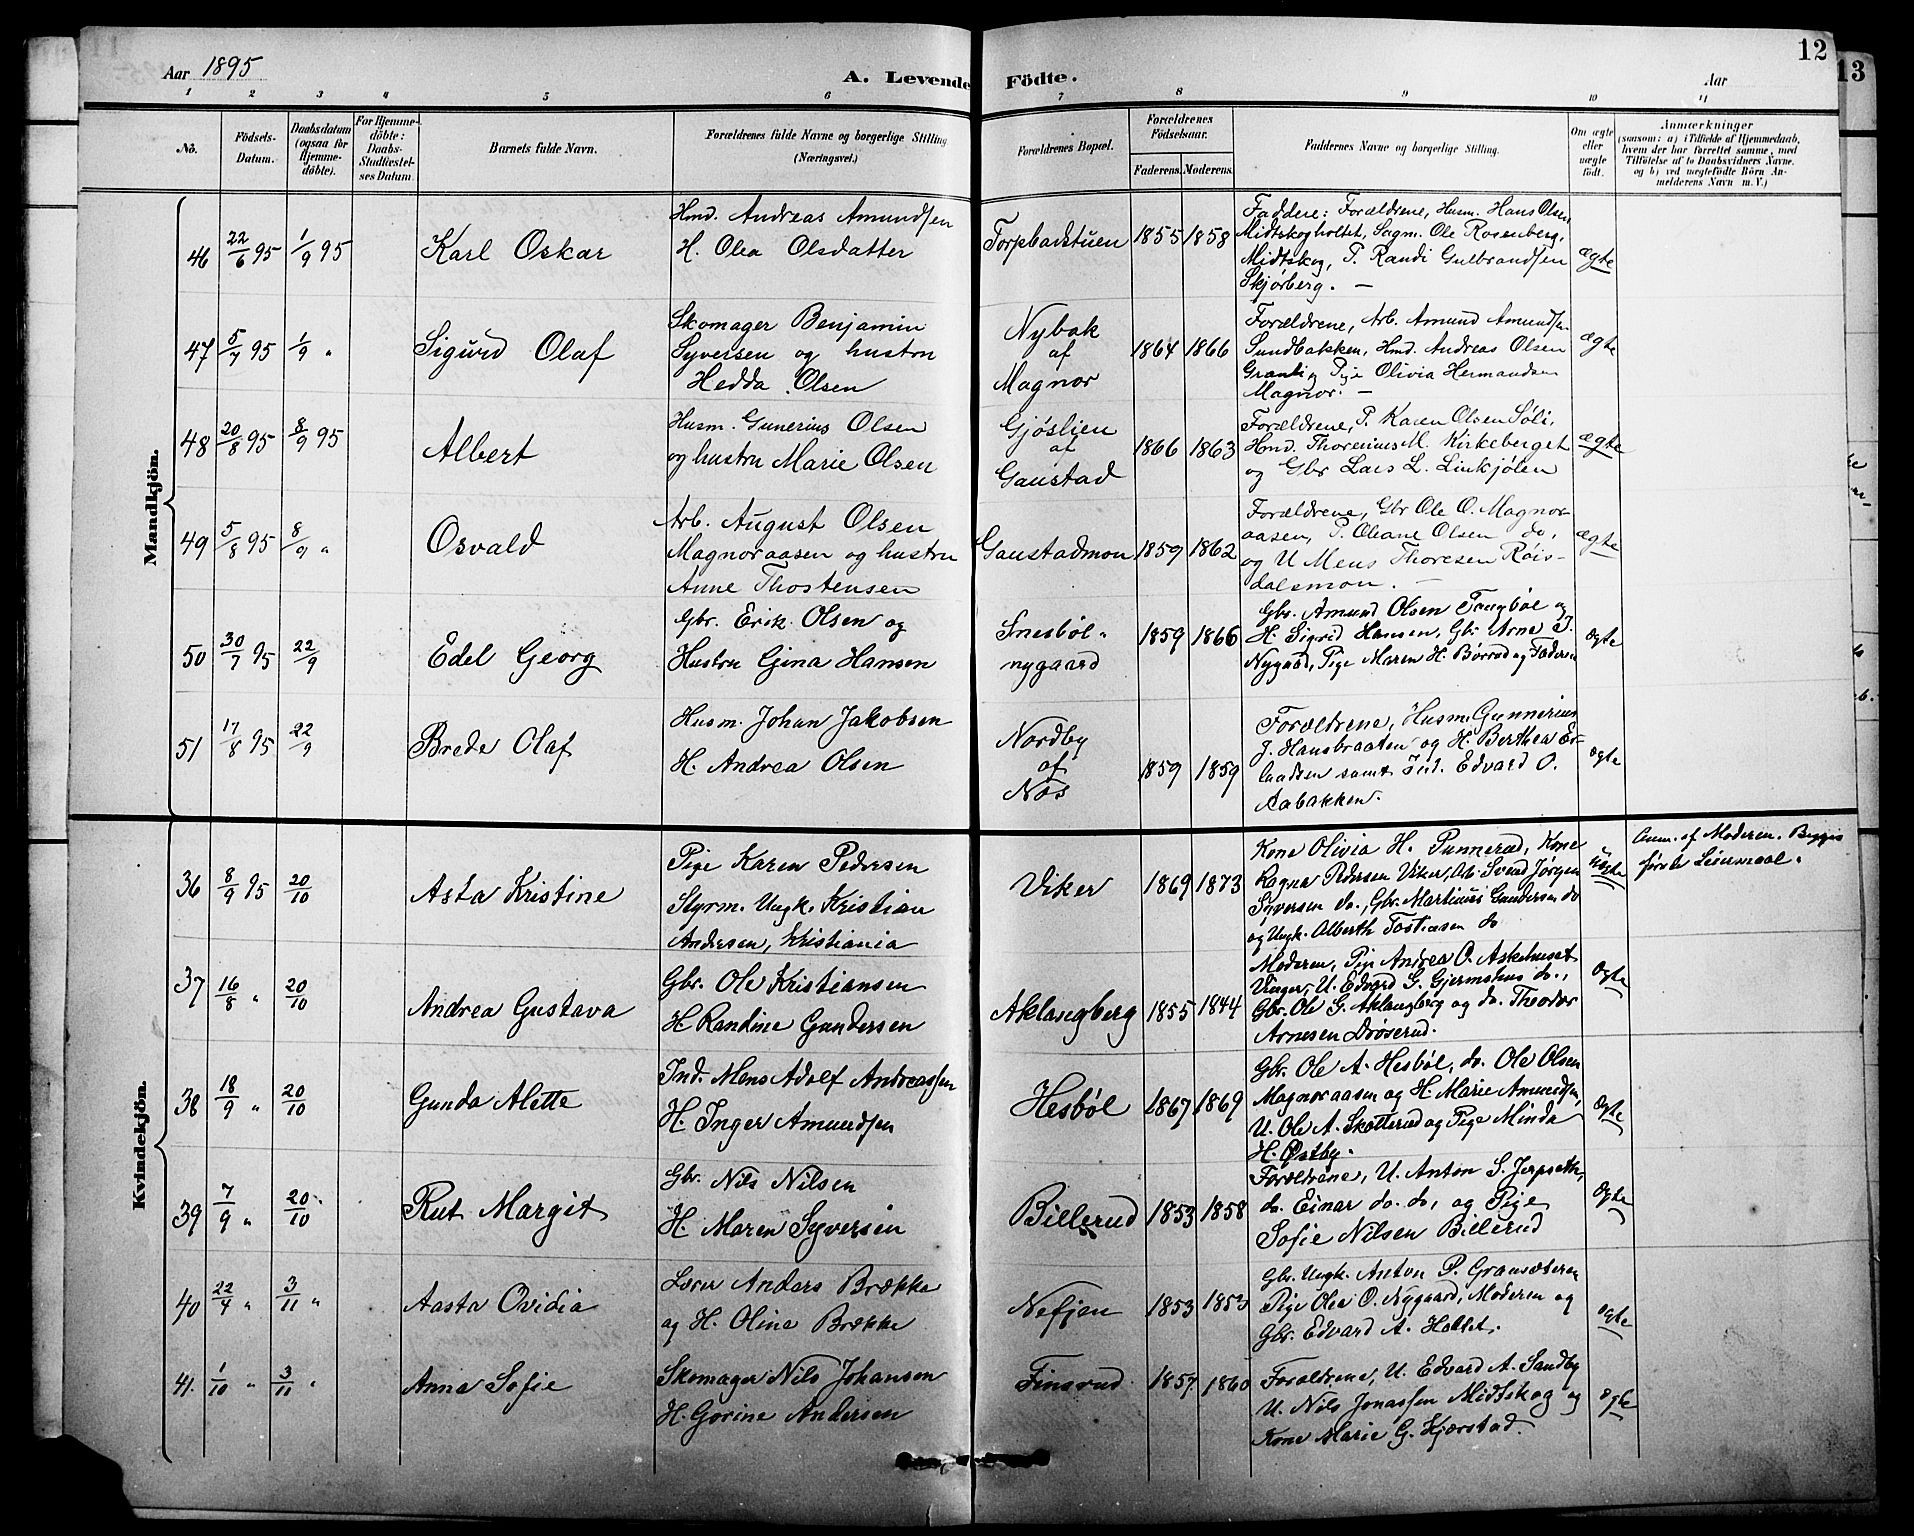 Aar 1895
A. Levende Födte.
Aar
12
13
1 2 3 4 5 6 7 8 9 10 11
Nô.
Födsels-Datum.
Daabsdatum (ogsaa for Hjemmedöbte).
For Hjemmedöbte: Daabs-Stadfæstelses Datum.
Barnets fulde Navn.
Forældrenes fulde Navne og borgerlige Stilling (Næringsvei.)
Forældrenes Bopæl.
Forældrenes Födselsaar.
Faderens. Moderens.
Faddernes Navne og borgerlige Stilling.
Om ægte eller uægte födt.
Anmærkninger
(saasom: a) i Tilfælde af Hjemmedaab,
hvem der har forrettet samme, med
Tilföielse af to Daabsvidners Navne.
og b) ved uægtefödte Börn An-
melderens Navn m. V.)
Mandkjön.
46 22/6 95 1/9 95 Karl Oskar
Hmd. Andreas Amundsen
H. Olea Olsdatter
Torpbadstuen 1855 1858
Faddere: Forældrene, Husm. Hans Olsen
Midtskogholtet, Sagm. Ole Rosenberg,
Midtskog, P. Randi Gulbrandsen
Skjørberg. —
ægte
47 5/7 95 1/9 " Sigurd Olaf
Skomager Benjamin
Syversen og hustru
Hedda Olsen
Nybak
af
Magnor
1864 1866
Forældrene, Arb. Amund Amundsen
Sundbakken, Hmd. Andreas Olsen
Pige Olivia Hermandsen
Magnor. —
ægte
48 20/8 95 8/9 95 Albert
Husm. Gunerius Olsen
og hustru Marie Olsen
Gjøslien
af
Gaustad
1866 1863
Forældrene, P. Karen Olsen Søli,
Hmd. Thorenius M. Kirkeberget
og Gbr Lars L. Linkjølen
ægte
49 5/8 95 8/9 " Osvald
Arb. August Olsen
Magnoraasen og hustru
Anne Thostensen
Gaustadmon 1859 1862
Forældrene, Gbr Ole O. Magnor-
aasen, P. Oleane Olsen do,
og U Mens Thoresen Røis-
dalsmon. —
ægte
50 30/7 95 22/9 Edel Georg
Gbr. Erik Olsen og
Hustru Gina Hansen
Snesbøl-
nygaard
1859 1866
Gbr. Amund Olsen Tangbøl og
H. Sigrid Hansen, Gbr Arne J.
Nygaad, Pige Maren H. Børrud og Faderen
ægte
51 17/8 95 22/9 Brede Olaf
Husm. Johan Jakobsen
H. Andrea Olsen
Nordby
af
Næs
1859 1859
Forældrene, Husm. Gunnerius
J. Hansbraaten og H. Berthea Er-
landsen samt Ind. Edvard O.
Aabakken.
ægte
Kvindekjön.
36 8/9 95 20/10 Asta Kristine
Pige Karen Pedersen
Styrm. Ungk. Kristian
Andersen, Kristiania
Viker 1869 1873
Kone Olivia H. Punnerud, Kone
Ragna Pedersen Viker, Arb. Svend Jørgen
Syversen do., Gbr. Martinius Gundersen do
og Ungk. Alberth Tostiæsen do
Uægte
Anm. af Moderen. Begges
første Leiermaal.
37 16/8 " 20/10 Andrea Gustava
Gbr. Ole Kristiansen
H Randine Gundersen
Aklangberg 1855 1844
Moderen, Pige Andrea O. Askehuset
Vinger, U. Edvard G. Gjermshus do.,
Gbr. Ole G. Aklangberg og do. Theodor
Arnesen Drøserud.
Ægte
38 18/9 " 20/10 Gunda Alette
Ind. Mens Adolf Andreassen
H. Inger Amundsen
Hesbøl 1867 1869
Gbr. Ole A. Hesbøl, do. Ole Olsen
Magnoraasen og H. Marie Amundsen,
U. Ole A. Skotterud og Pige Minda
H. Østby.
Ægte
39 7/9 " 20/10 Rut Margit
Gbr. Nils Nilsen
H. Maren Syversen
Billerud 1853 1858
Forældrene, U. Anton S. Jerpseth,
do. Einar do. do., og Pige
Sofie Nilsen Billerud
Ægte
40 22/4 " 3/11 " Aasta Ovidia
Lærer Anders Brække
og H. Olina Brække
Nefjen 1853 1853
Gbr. Ungk. Anton P. Gransæteren
Pige Olea O. Nygaard, Moderen og
Gbr. Edvard A. Holtet.
ægte
41. 1/10 " 3/11 " Anna Sofie
Skomager Nils Johansen
H. Gorine Andersen
Finsrud 1857 1860
Forældrene, U. Edvard A. Sandby
U. Nils Jonassen Midtskog og
Kone Marie G. Kjærstad.
ægte